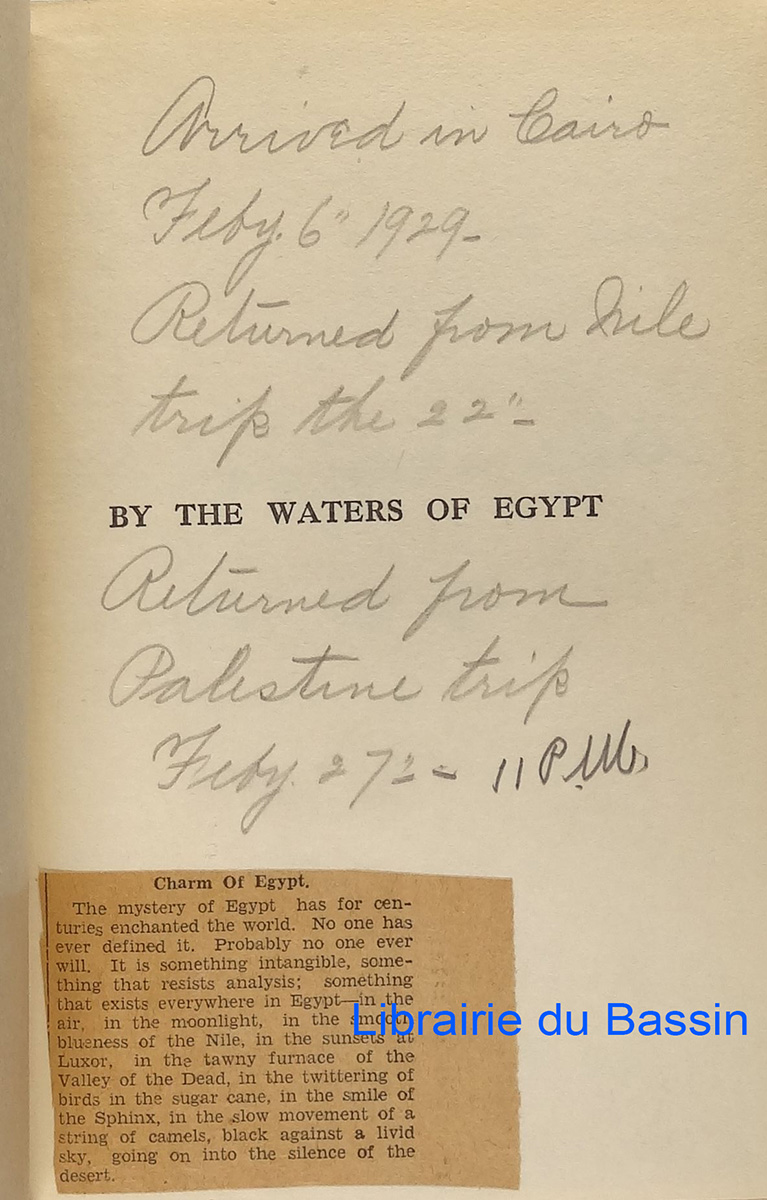 Arrived in Cairo
Feby. 6" 1929-
Returned from Nile
trip the 22"-
BY THE WATERS OF EGYPT
Returned from
Palestine trip
Feby. 27" - 11 P.M.
Charm Of Egypt.
The mystery of Egypt has for cen-
turies enchanted the world. No one has
ever defined it. Probably no one ever
will. It is something intangible, some-
thing that resists analysis; something
that exists everywhere in Egypt—in the
air, in the moonlight, in the smooth
Librairie du Bassin
blueness of the Nile, in the sunsets at
Luxor, in the tawny furnace of the
Valley of the Dead, in the twittering of
birds in the sugar cane, in the smile of
the Sphinx, in the slow movement of a
string of camels, black against a livid
sky, going on into the silence of the
desert.